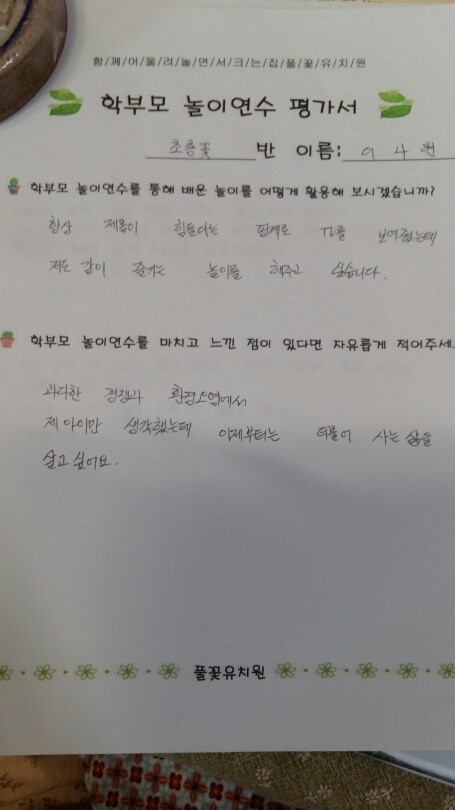 함/께/어/울/려/놀/면/서/크/는/집/풀/꽃/유/치/원
학부모 놀이연수 평가서
초롱꽃 반 이름: 이
학부모 놀이연수를 통해 배운 놀이를 어떻게 활용해 보시겠습니까?
항상 제몸이 힘들다는 핑계로 TV를 보여줬는데
저도 같이 즐기는 놀이를 해주고 싶습니다.
학부모 놀이연수를 마치고 느낀 점이 있다면 자유롭게 적어주세요
과다한 경쟁과 환경오염에서
제 아이만 생각했는데 이제부터는 더불어 사는 삶을
살고 싶어요.
풀꽃유치원